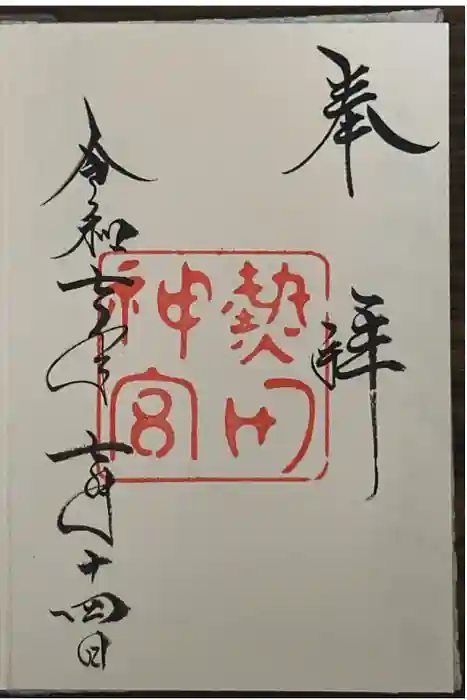 奉拝
熱田
神宮
令和七年七月十四日